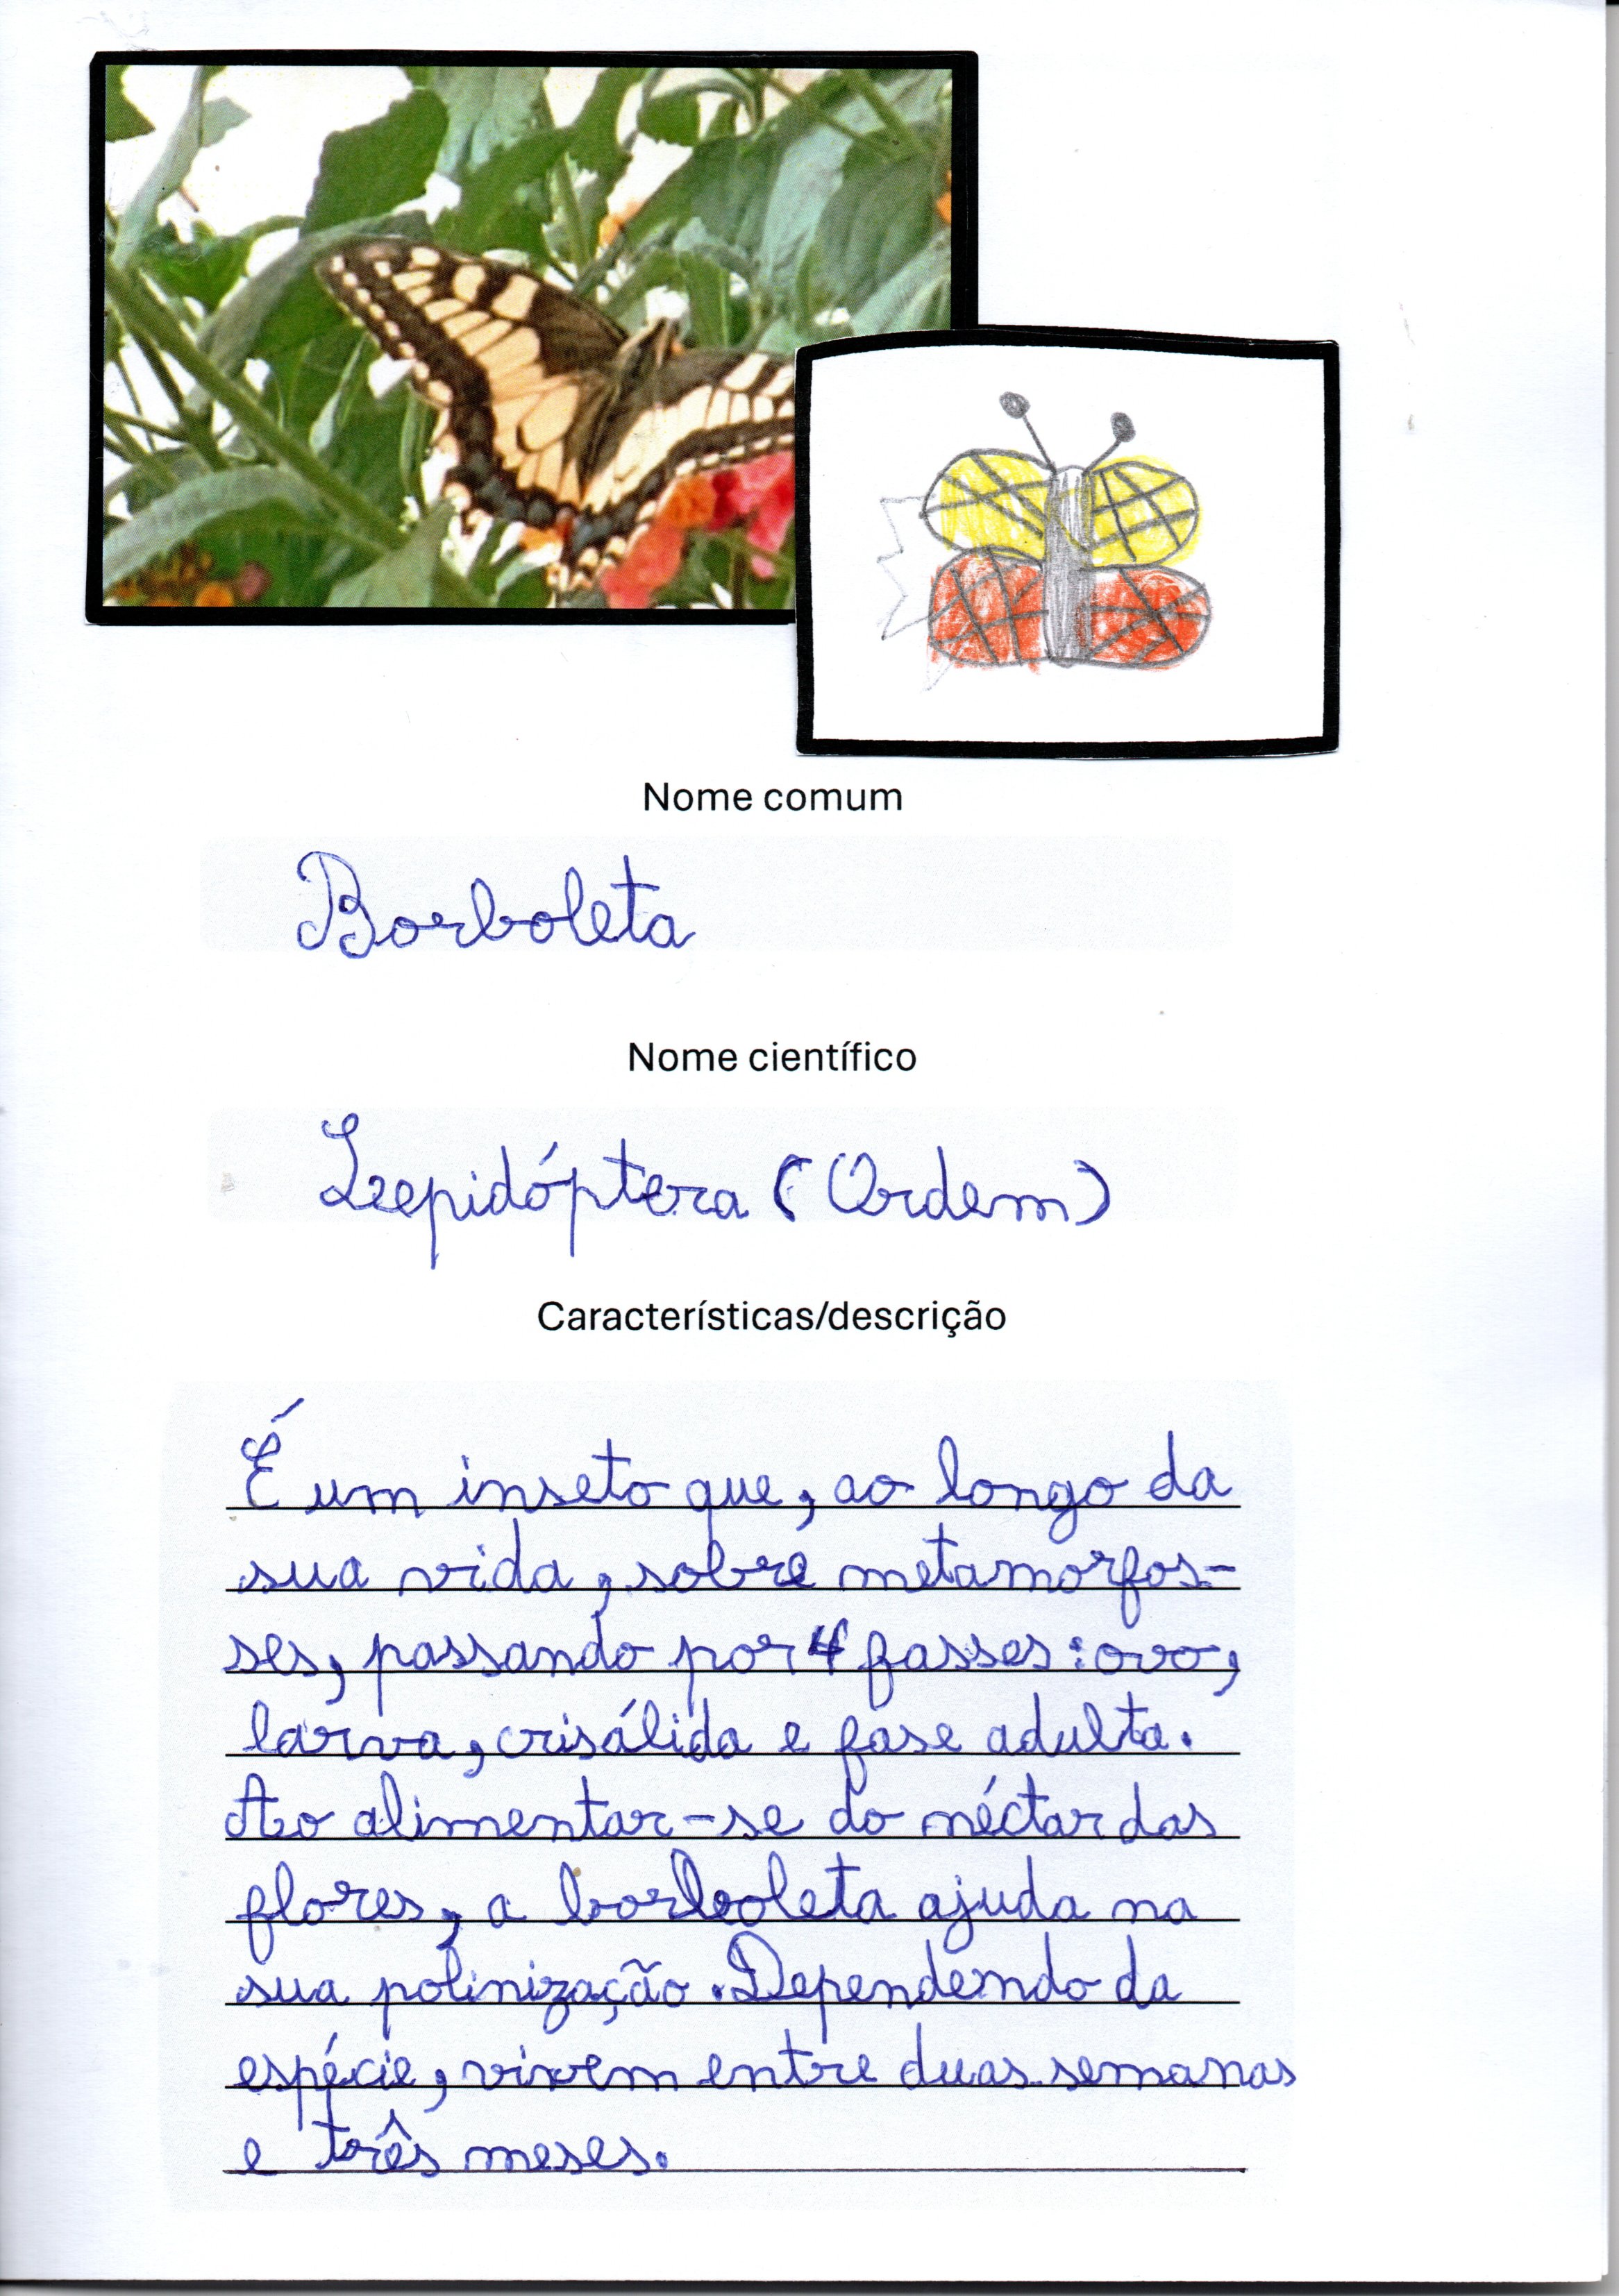 Nome comum
Borboleta
Nome científico
Lepidóptera (Ordem)
Características/descrição
É um inseto que, ao longo da
sua vida, sobre metamorfos-
ses, passando por 4 fasses: ovo,
larva, crisálida e fase adulta.
Ao alimentar-se do néctar das
flores, a borboleta ajuda na
sua polinização. Dependendo da
espécie, vivem entre duas semanas
e três meses.